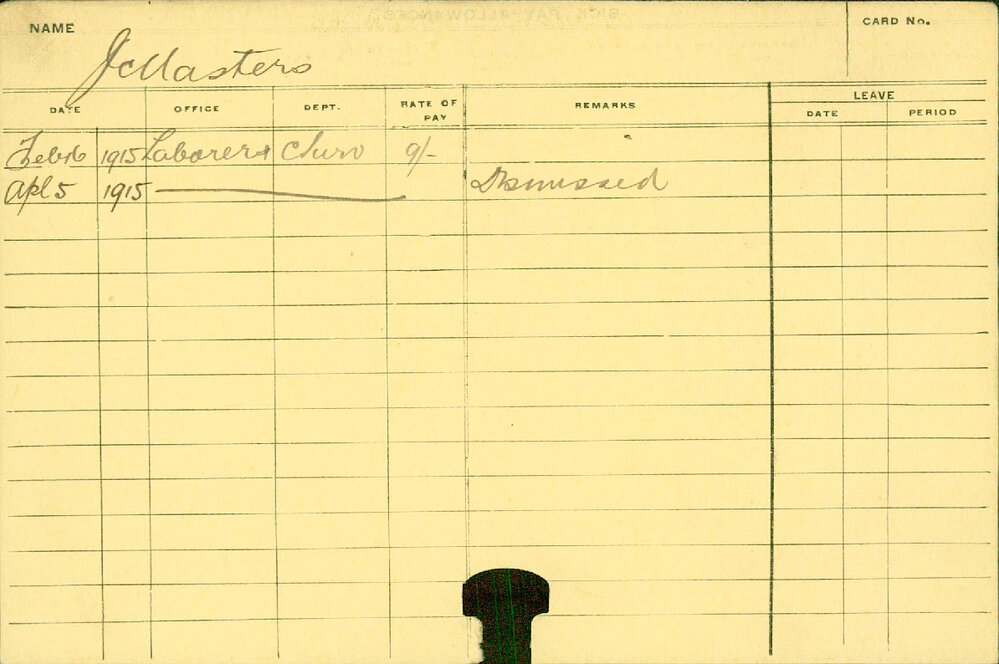 NAME
J McMasters
CARD No.
DATE OFFICE DEPT. RATE OF PAY REMARKS LEAVE
DATE PERIOD
Feb 16 1915 Laborer 9/-
Apl 5 1915 Dismissed